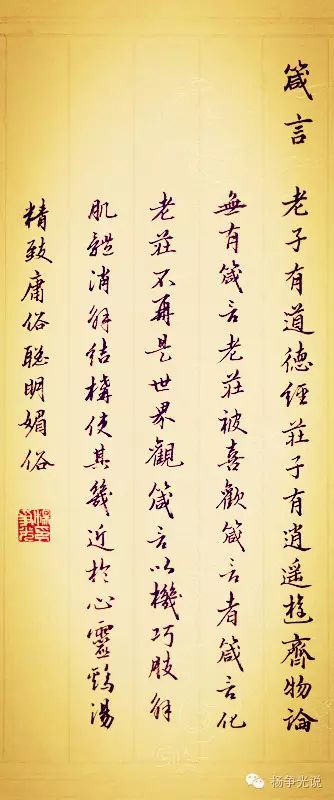 箴言 老子有道德經莊子有逍遥遊齊物論
無有箴言老莊被喜歡箴言者箴言化
老莊不再是世界觀箴言以機巧肢解
肌體消解結構使其幾近於心靈鷄湯
精致庸俗聰明媚俗
杨争光说